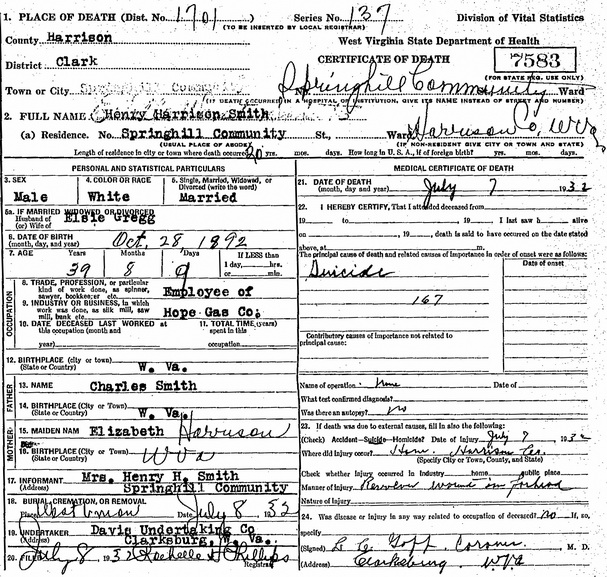 1. PLACE OF DEATH (Dist. No. 1701 Series No. 137 Division of Vital Statistics
(TO BE INSERTED BY LOCAL REGISTRAR)
County Harrison West Virginia State Department of Health
District Clark CERTIFICATE OF DEATH 7583
(FOR STATE REG. USE ONLY)
Town or City Springhill Community No. Springhill Community Ward
(IF DEATH OCCURRED IN A HOSPITAL OR INSTITUTION, GIVE ITS NAME INSTEAD OF STREET AND NUMBER)
2. FULL NAME Henry Harrison Smith
(a) Residence. No. Springhill Community St., Ward, Harrison Co, WVa
(USUAL PLACE OF ABODE) (IF NON-RESIDENT GIVE CITY OR TOWN AND STATE)
Length of residence in city or town where death occurred 20 yrs. mos. days. How long in U. S. A., if of foreign birth? yrs. mos. days.
PERSONAL AND STATISTICAL PARTICULARS
3. SEX 4. COLOR OR RACE 5. Single, Married, Widowed, or Divorced (write the word)
Male White Married
5a. IF MARRIED WIDOWED OR DIVORCED
Husband of Elsie Gregg
(or) Wife of
6. DATE OF BIRTH
(month, day, and year) Oct. 28 1892
7. AGE Years Months Days If LESS than
39 8 9 1 day, hrs.
or min.
OCCUPATION
8. TRADE, PROFESSION, or particular kind of work done, as spinner, sawyer, bookkeeper etc. Employee of
9. INDUSTRY OR BUSINESS, in which work was done, as silk mill, saw mill, bank etc. Hope Gas Co.
10. DATE DECEASED LAST WORKED at this occupation (month and year)
11. TOTAL TIME (years) spent in this occupation
12. BIRTHPLACE (city or town)
(State or Country) W. Va.
FATHER
13. NAME Charles Smith
14. BIRTHPLACE (City or Town)
(State or Country) W. Va.
MOTHER
15. MAIDEN NAME Elizabeth Harrison
16. BIRTHPLACE (City or Town)
(State or Country) W Va
17. INFORMANT Mrs. Henry H. Smith
(Address) Springhill Community
18. BURIAL, CREMATION, OR REMOVAL
Place Date July 8 1932
19. UNDERTAKER Davis Undertaking Co
(Address) Clarksburg, W. Va.
20. FILED July 8 1932 Rachelle H Phillips
Registrar
MEDICAL CERTIFICATE OF DEATH
21. DATE OF DEATH
(month, day and year) July 7 1932
22. I HEREBY CERTIFY, That I attended deceased from
19 to , 19 I last saw h alive
on , 19 , death is said to have occurred on the date stated
above, at m.
The principal cause of death and related causes of importance in order of onset were as follows:
Date of onset
Suicide
167
Contributory causes of importance not related to principal cause:
Name of operation None Date of
What test confirmed diagnosis?
Was there an autopsy? No
23. If death was due to external causes, fill in also the following:
(Check) Accident—Suicide—Homicide? Date of injury July 7 1932
Where did injury occur? Home Harrison Co.
(Specify City or Town, County, and State)
Check whether injury occurred in industry home public place
Manner of injury Revolver wound in forhead
Nature of injury
24. Was disease or injury in any way related to occupation of deceased? No If so,
specify
(Signed) L C Goff Coroner M. D.
(Address) Clarksburg WVa